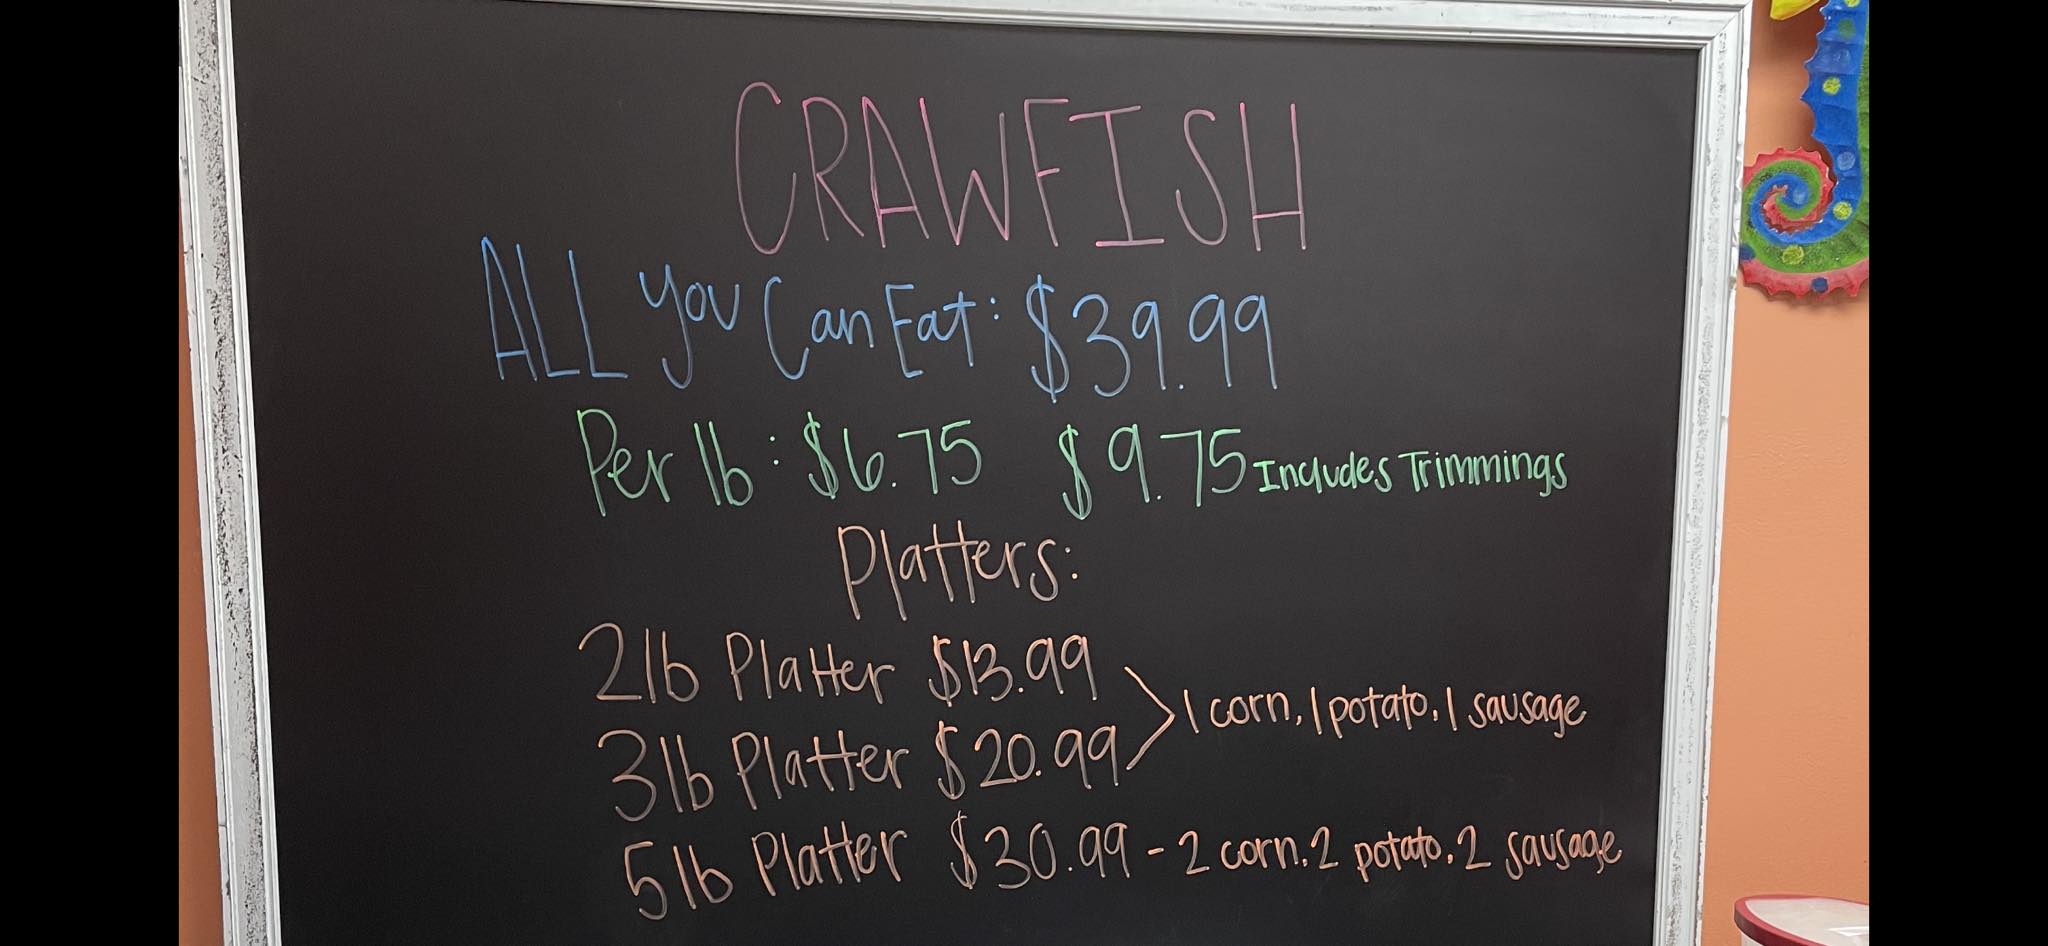 CRAWFISH
ALL You Can Eat: $39.99
Per lb: $6.75 $9.75 Includes Trimmings
Platters:
2lb Platter $13.99
1 corn, 1 potato, 1 sausage
3lb Platter $20.99
5lb Platter $30.99 - 2 corn, 2 potato, 2 sausage